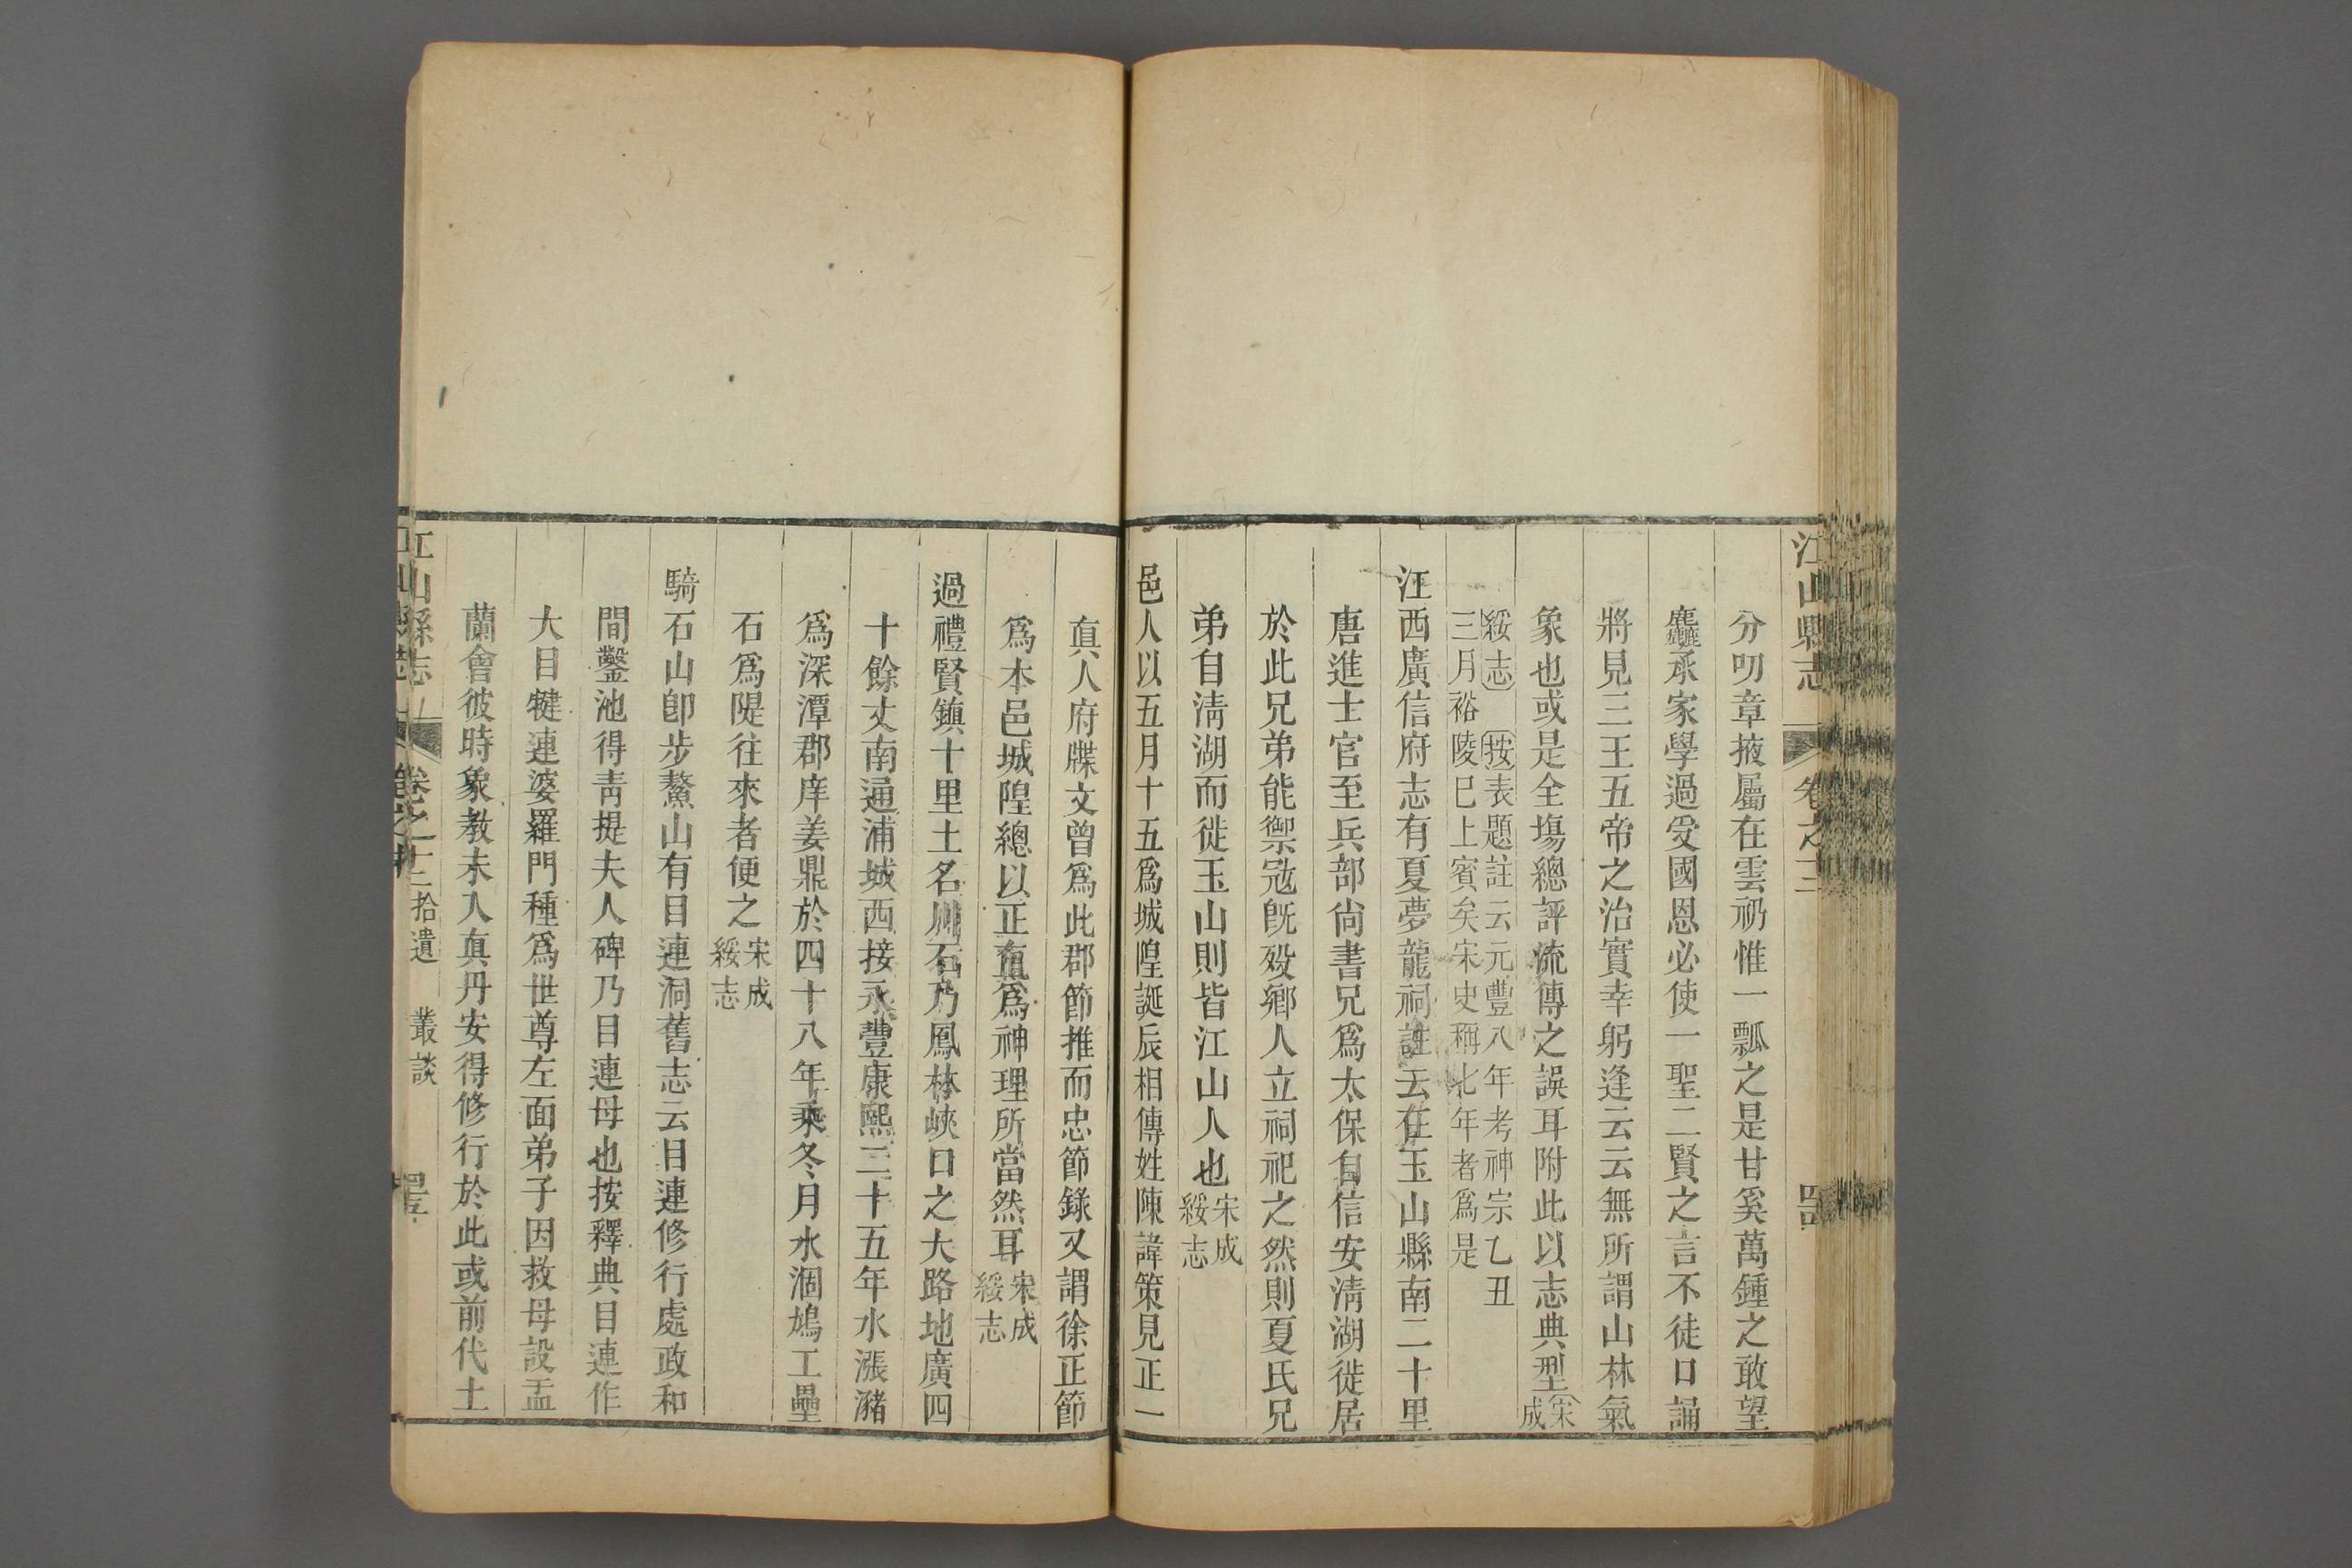 江山縣志 卷之十二
分叨章掖屬在雲礽惟一瓢之是甘奚萬鍾之敢望
麤承家學過受國恩必使一聖二賢之言不徒口誦
將見三王五帝之治實幸躬逢云云無所謂山林氣
象也或是全塲總評流傳之誤耳附此以志典型宋成
綏志 按表題註云元豐八年考神宗乙丑
三月裕陵已上賓矣宋史稱七年者爲是
江西廣信府志有夏夢龍祠註云在玉山縣南二十里
唐進士官至兵部尙書兄爲太保自信安淸湖徙居
於此兄弟能禦冦旣殁鄉人立祠祀之然則夏氏兄
弟自淸湖而徙玉山則皆江山人也宋成綏志
邑人以五月十五爲城隍誕辰相傳姓陳諱策見正一
眞人府牒文曾爲此郡節推而忠節錄又謂徐正節
爲本邑城隍總以正直爲神理所當然耳宋成綏志
過禮賢鎮十里土名剝石乃鳳林峽口之大路地廣四
十餘丈南通浦城西接永豐康熙三十五年水漲瀦
爲深潭郡庠姜鼎於四十八年乘冬月水涸鳩工壘
石爲隄往來者便之宋成綏志
騎石山卽步鰲山有目連洞舊志云目連修行處政和
間鑿池得靑提夫人碑乃目連母也按釋典目連作
大目犍連婆羅門種爲世尊左面弟子因救母設盂
蘭會彼時象教未入眞丹安得修行於此或前代土
江山縣志 卷之十二 拾遺 叢談